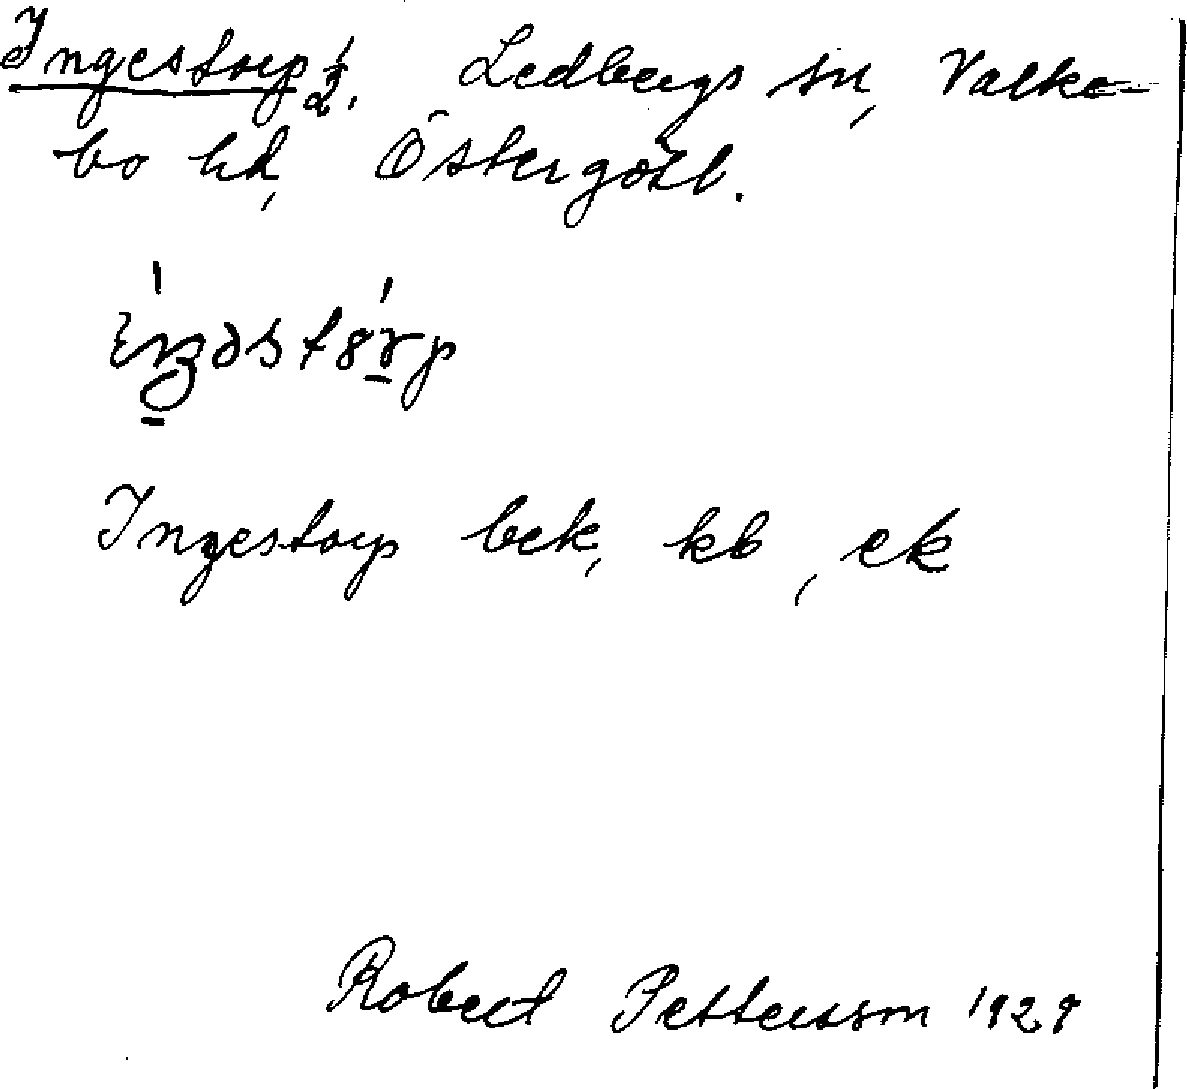 Ingestorp 1/2. Ledbergs sn, Valke-
bo hd, Östergötl.
Ingestorp bek, kb, ek
Robert Pettersson 1929